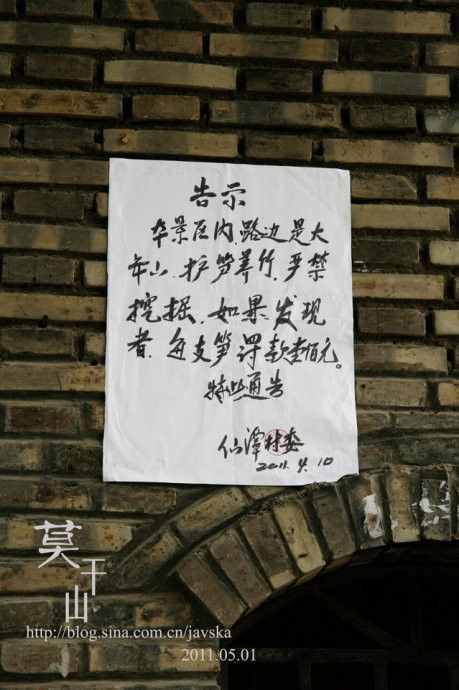 告示
本景区内、路边是大
年山、护笋养竹、严禁
挖掘、如果发现
者、每支笋罚款壹佰元。
特此通告
仙潭村委
2011.4.10
莫干山
http://blog.sina.com.cn/javska
2011.05.01